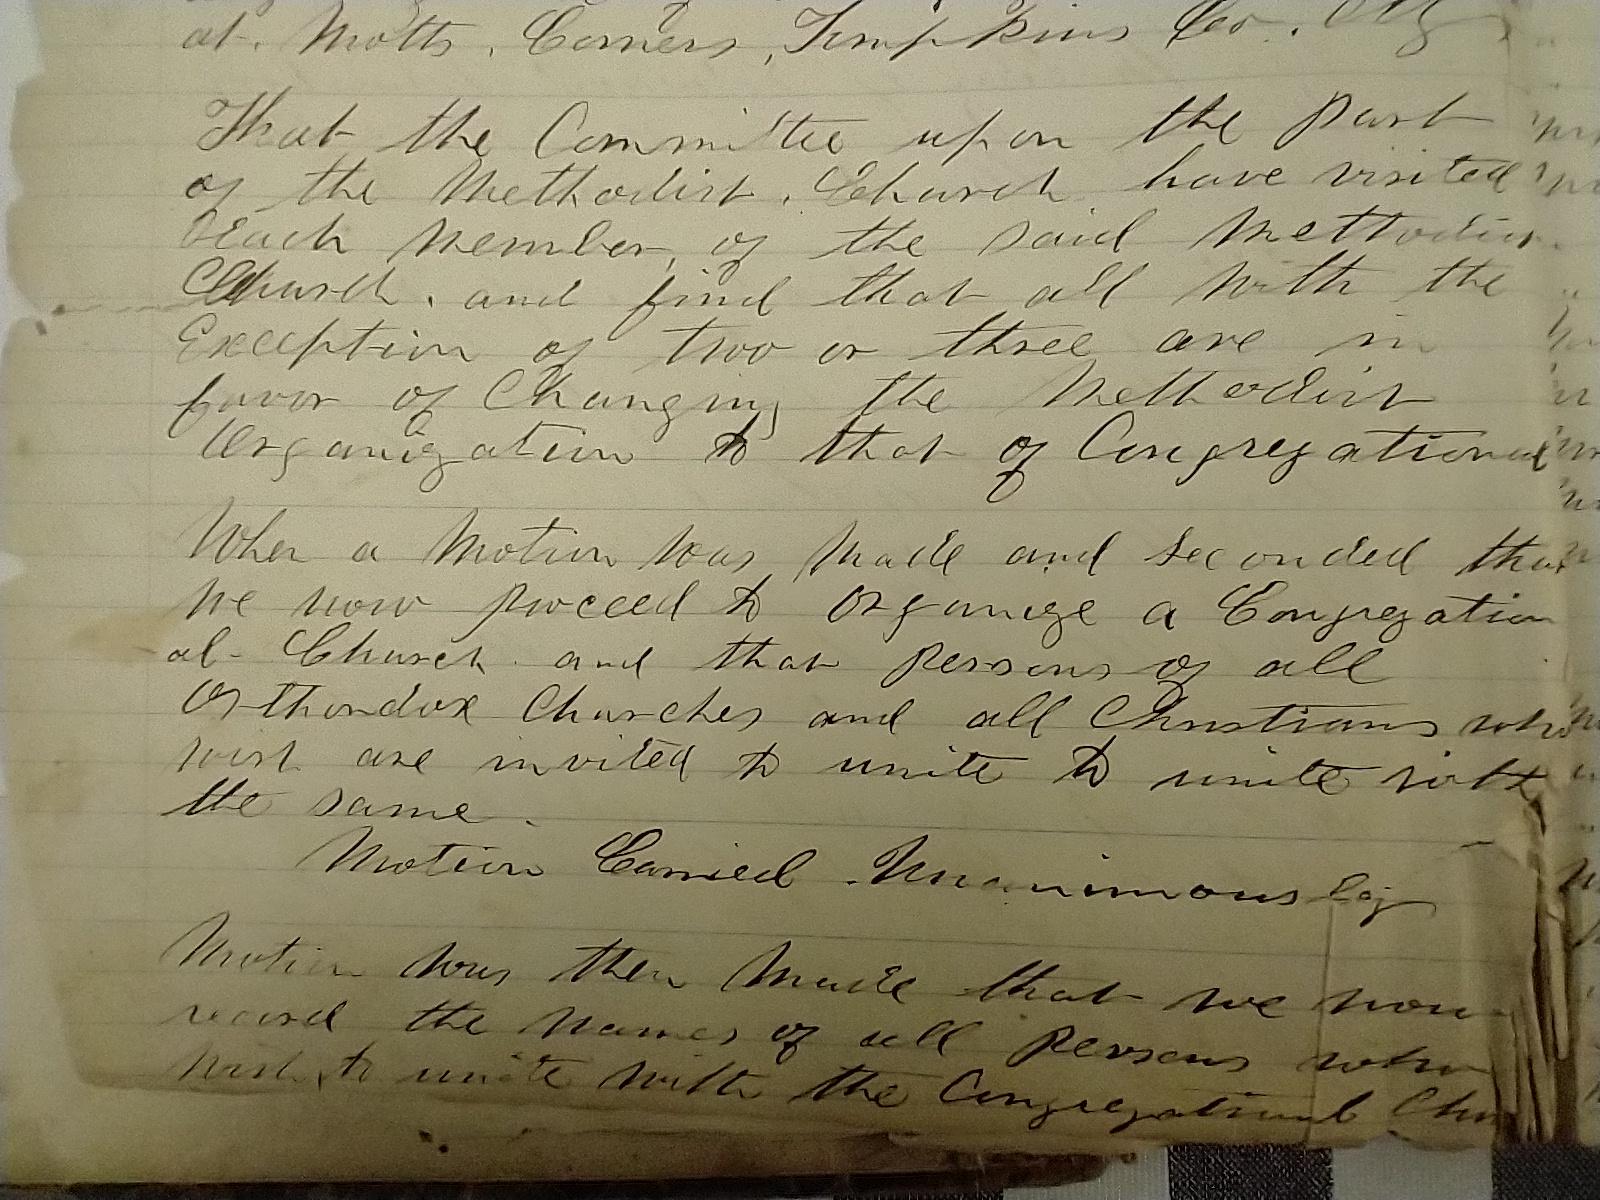 at. Motts. Corners, Tompkins Co.
That the Committee upon the part
of the Methodist. Church have visited
Each Member, of the said Methodist
Church. and find that all with the
Exception of two or three are in
favor of Changing the Methodist
Organization to that of Congregational
When a Motion was Made and Seconded that
We now proceed to Organize a Congregation
al- Church and that persons of all
Orthondox Churches and all Christians who
wish are invited to unite to unite with
the same.
Motion Carried Unanimously
Motion was then Made that we now
record the Names of all Persons who
wish to unite with the Congregational